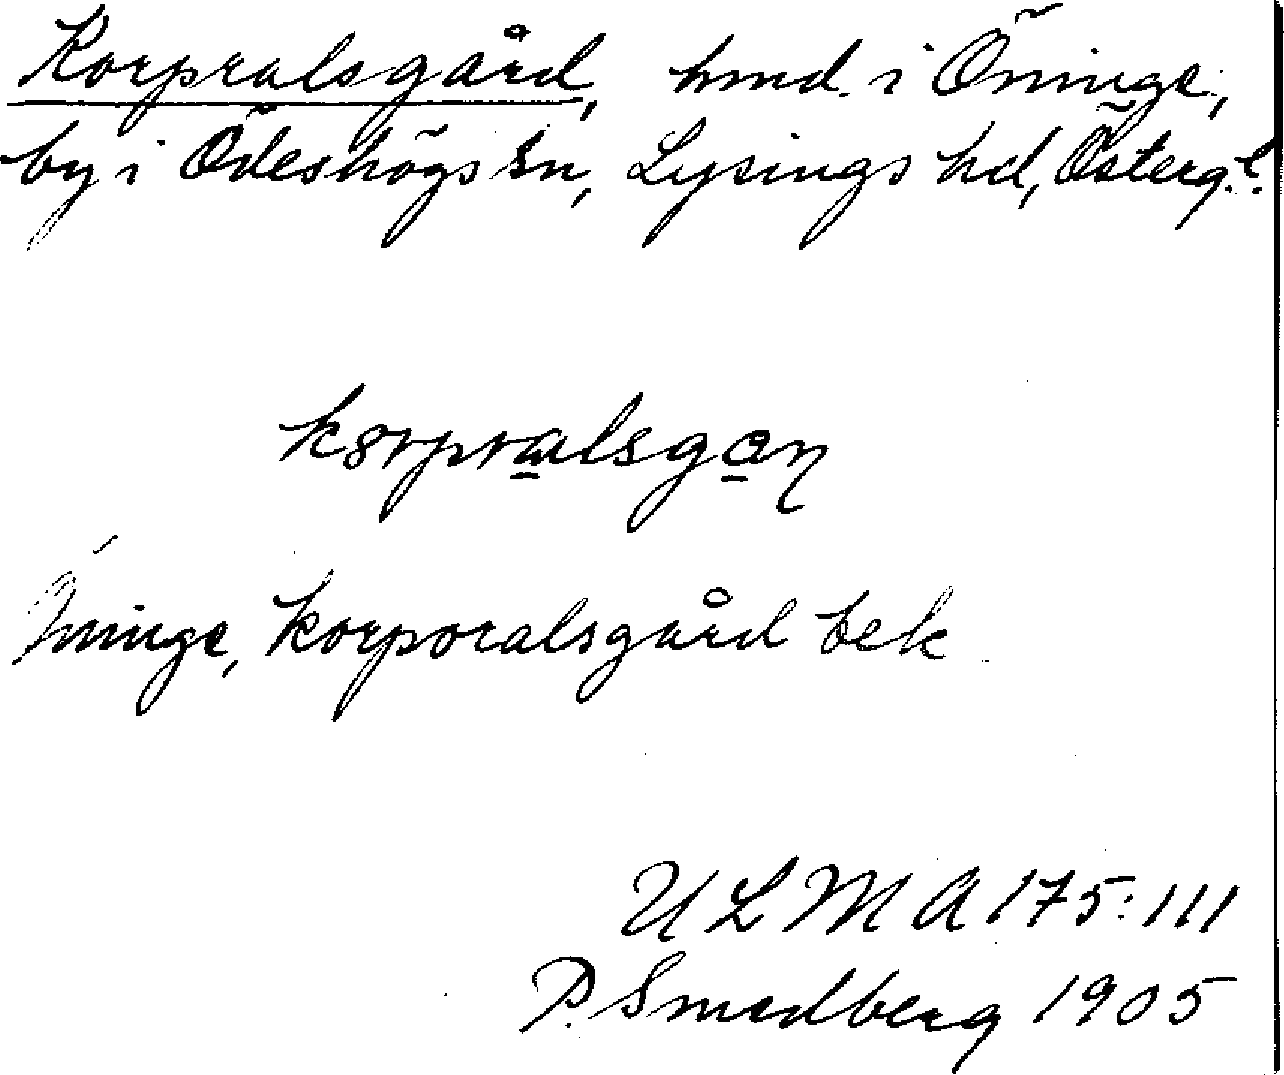 Korpralsgård, hmd. i Öninge,
by i Ödeshögs sn, Lysings hd, Österg.l.
korpralsgɑn
Öninge, korporalsgård bek.
ULMA 175:111
P. Smedberg 1905